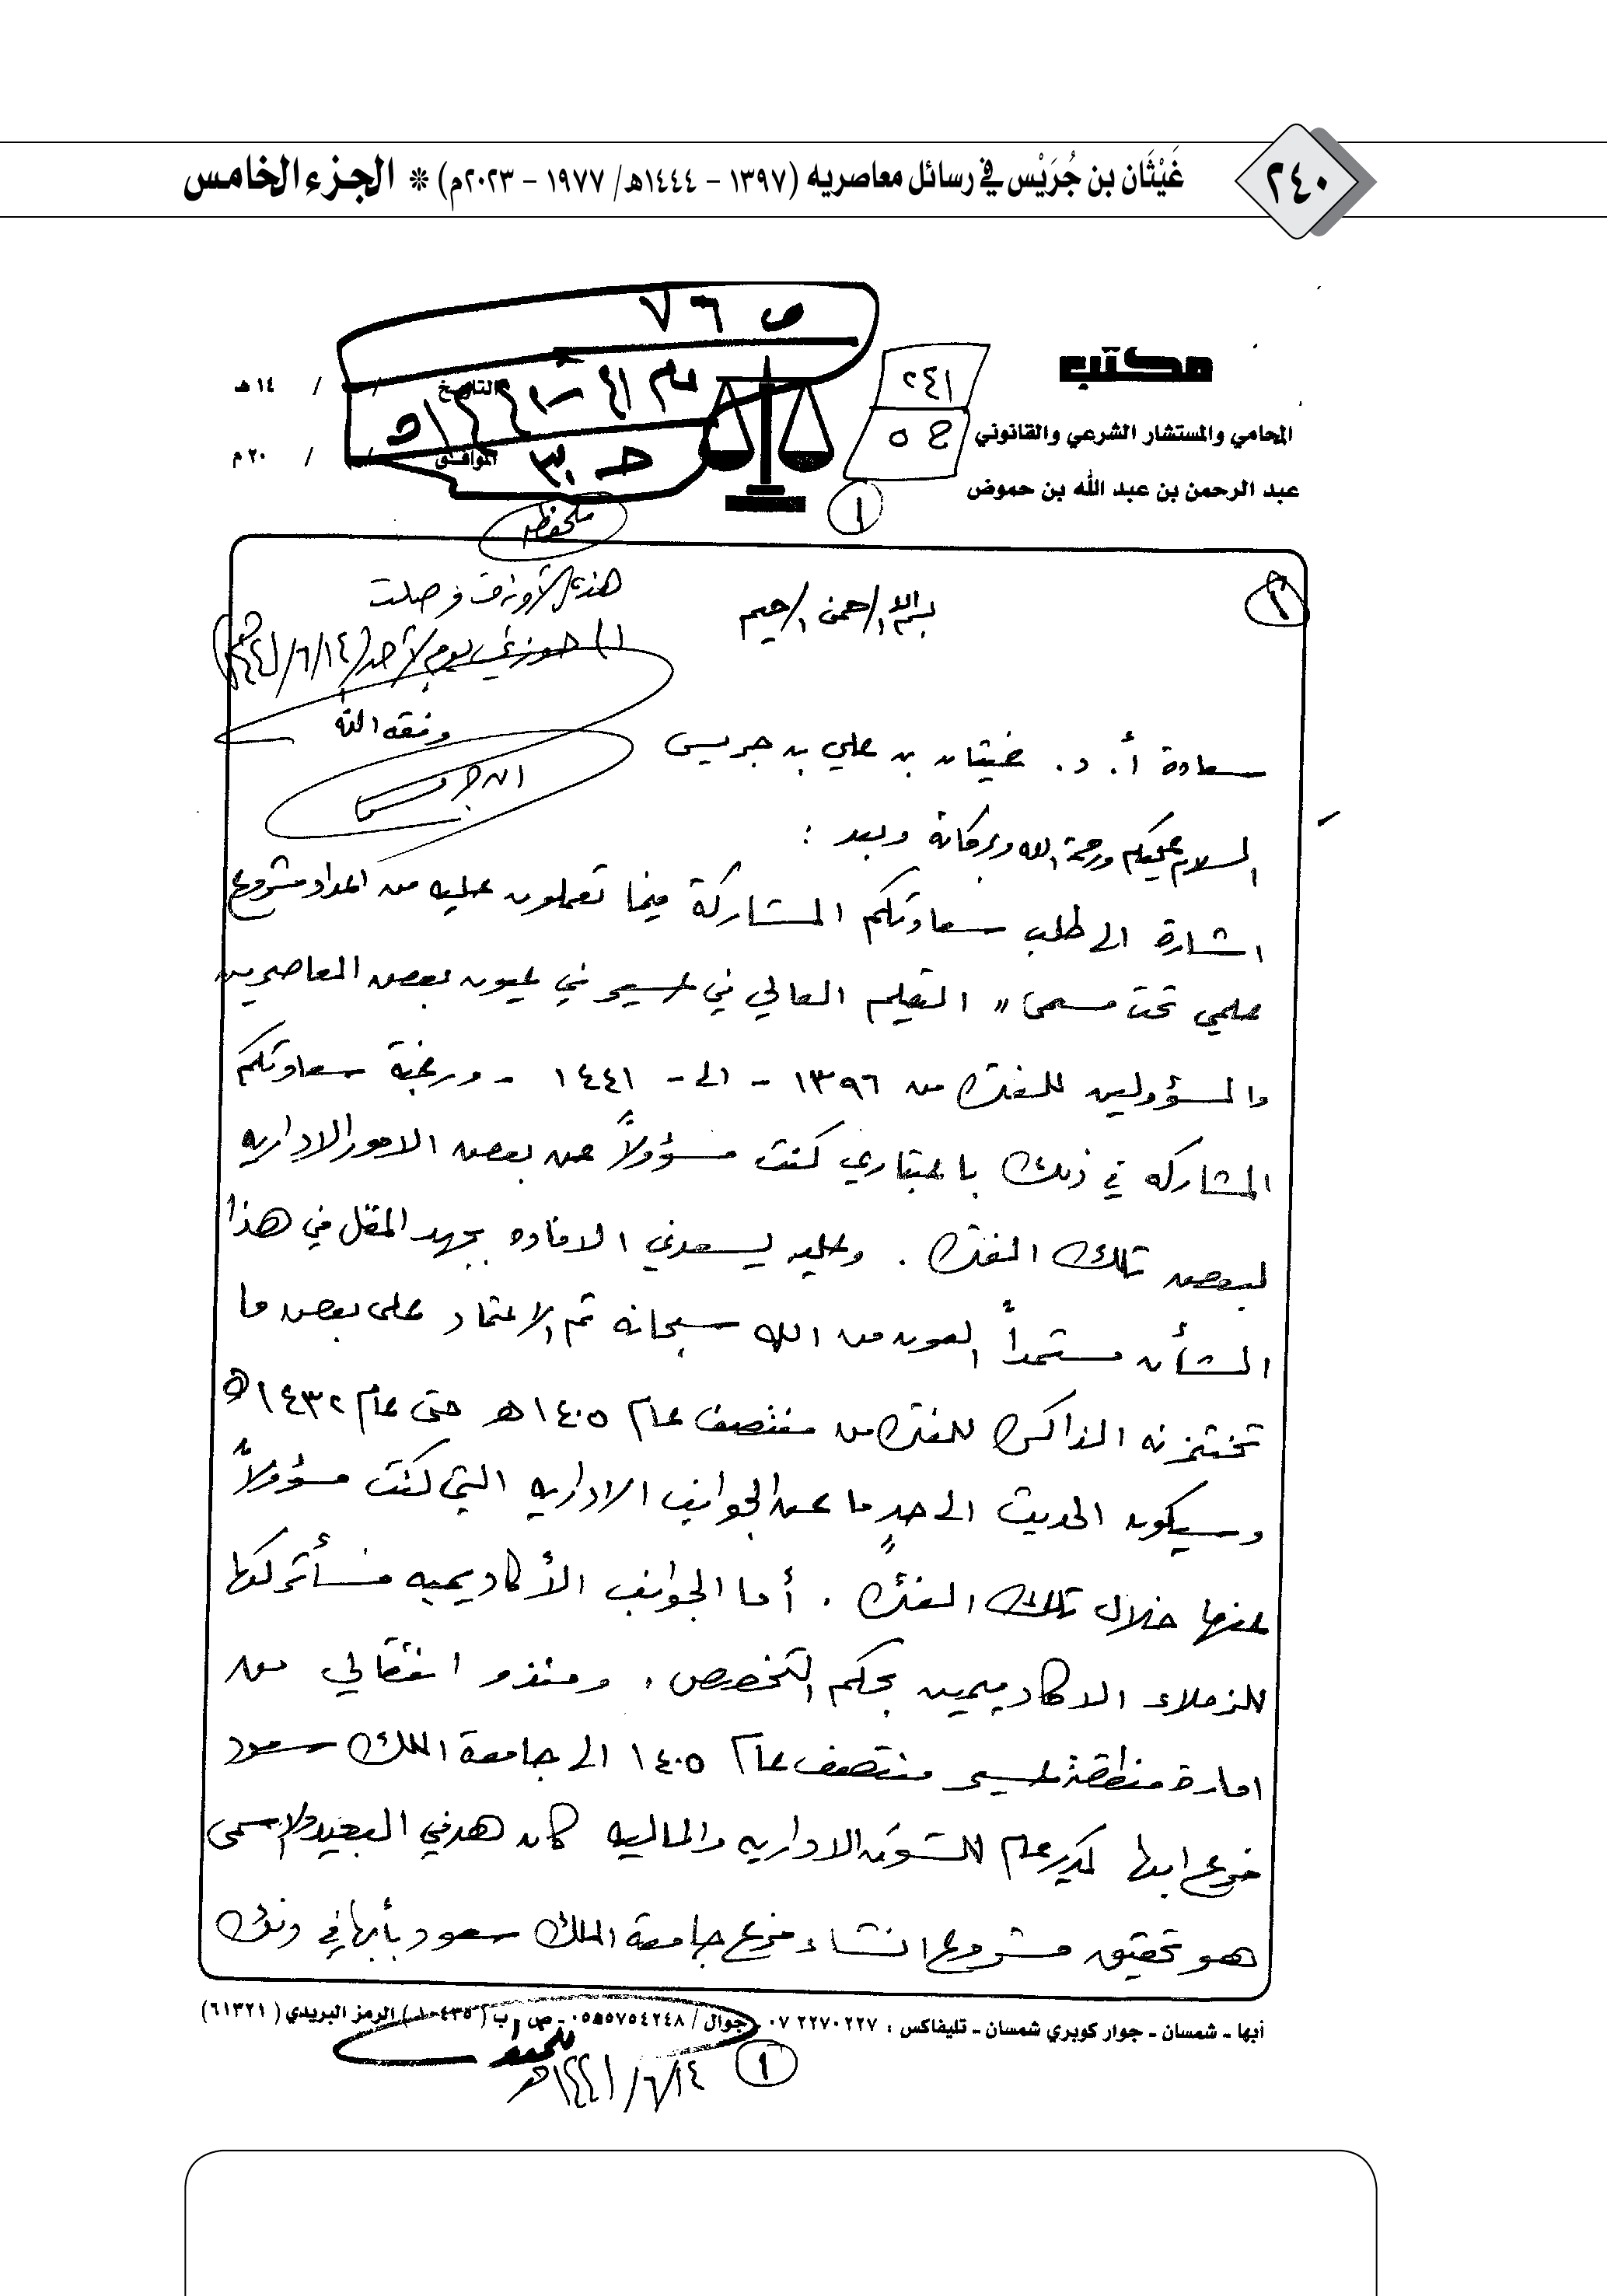 ٢٤٠
غَيْثَان بن جُرَيْس في رسائل معاصريه (١٣٩٧ - ١٤٤٤هـ/ ١٩٧٧ - ٢٠٢٣م) ❊ الجزء الخامس
ص ٧٦
مكتب
المحامي والمستشار الشرعي والقانوني
عبد الرحمن بن عبد الله بن حموض
٢٤١
ح ٥
١
التاريخ / / ١٤هـ
الموافق / / ٢٠م
ملحوظة
هذه الأوراق وصلت
يوم الأحد (١٤/٦/
وفقه الله
ابن جريس
بسم الله الرحمن الرحيم
سعادة أ. د. غيثان بن علي بن جريس
السلام عليكم ورحمة الله وبركاته وبعد :
اشارة الى طلب سعادتكم المشاركة فيما تعملون عليه من اعداد مشروع
علمي تحت مسمى " التعليم العالي في عسير في عيون بعض المعاصرين
والمسؤولين للفترة من ١٣٩٦ - الى - ١٤٤١ - ورغبة سعادتكم
المشاركه في ذلك باعتباري كنت مسؤولاً عن بعض الامور الاداريه
لبعض تلك الفترة . وعليه يسعدني الافاده بجهد المقل في هذا
الشأن مستمداً العون من الله سبحانه ثم الاعتماد على بعض ما
تختزنه الذاكرة للفترة من منتصف عام ١٤٠٥هـ حتى عام ١٤٣٢هـ
وسيكون الحديث الى حدٍ ما عن الجوانب الاداريه التي كنت مسؤولاً
عنها خلال تلك الفترة . أما الجوانب الأكاديميه فسأتركها
للزملاء الاكاديميين بحكم التخصص . ومنذ انتقالي من
امارة منطقة عسير منتصف عام ١٤٠٥ الى جامعة الملك سعود
فرع ابها كمدير عام للشؤون الاداريه والماليه كان هدفي البعيد والاسمى
هو تحقيق مشروع انشاء فرع جامعة الملك سعود بأبها في ذلك
أبها - شمسان - جوار كوبري شمسان - تليفاكس : ٠٧ ٢٢٧٠٢٢٧ - جوال / ٠٥٥٥٧٥٤٢٤٨ - ص . ب ( ) الرمز البريدي (٦١٣٢١)
١
١٤/٦/١٤٤١هـ